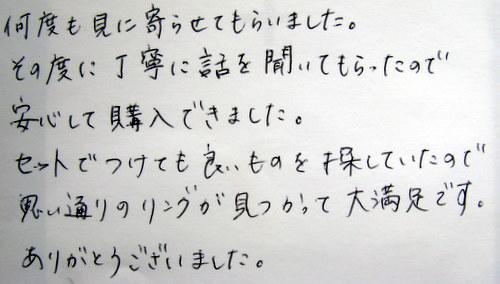 何度も見に寄らせてもらいました。
その度に丁寧に話を聞いてもらったので
安心して購入できました。
セットでつけても良いものを探していたので
思い通りのリングが見つかって大満足です。
ありがとうございました。